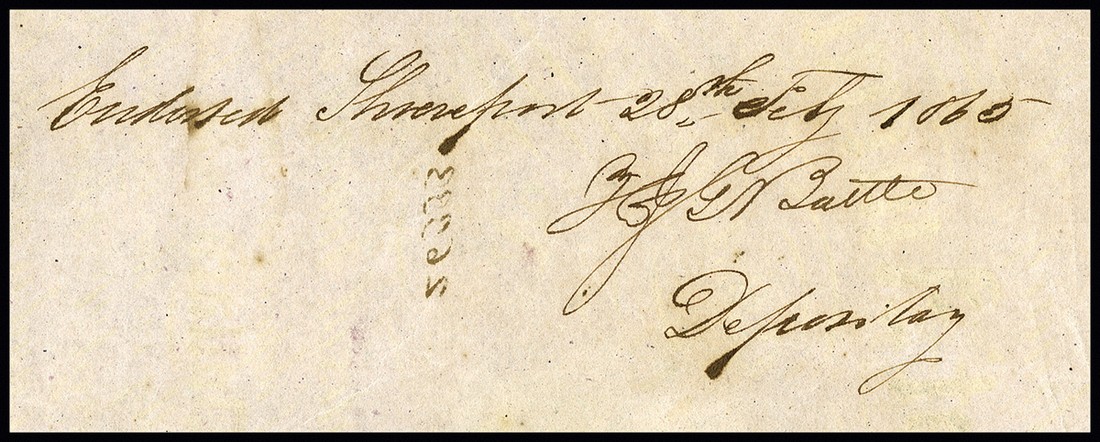 Endorsed Shreveport 28th Feby 1865
J G Battle
Depositary